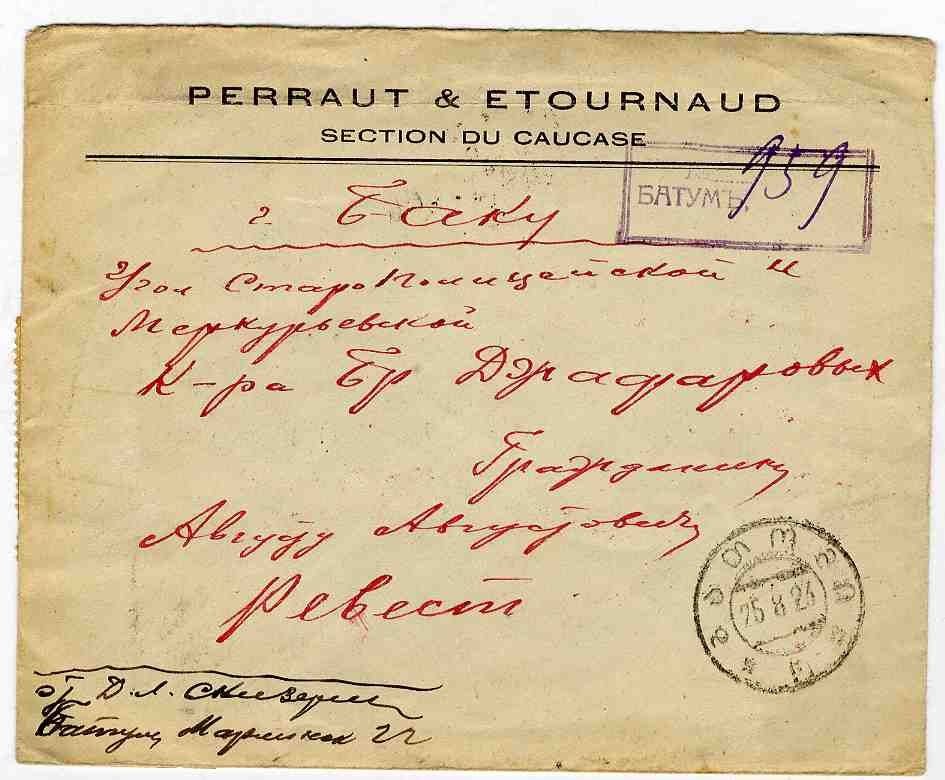 PERRAUT & ETOURNAUD
SECTION DU CAUCASE
БАТУМЪ. 959
г Баку
Угол Старо Полицейской и
Меркурьевской
К-ра Бр Джафаровых
Гражданину
Августу Августовичу
Ревест
25 8 23
от Д. Л.
Батум 22